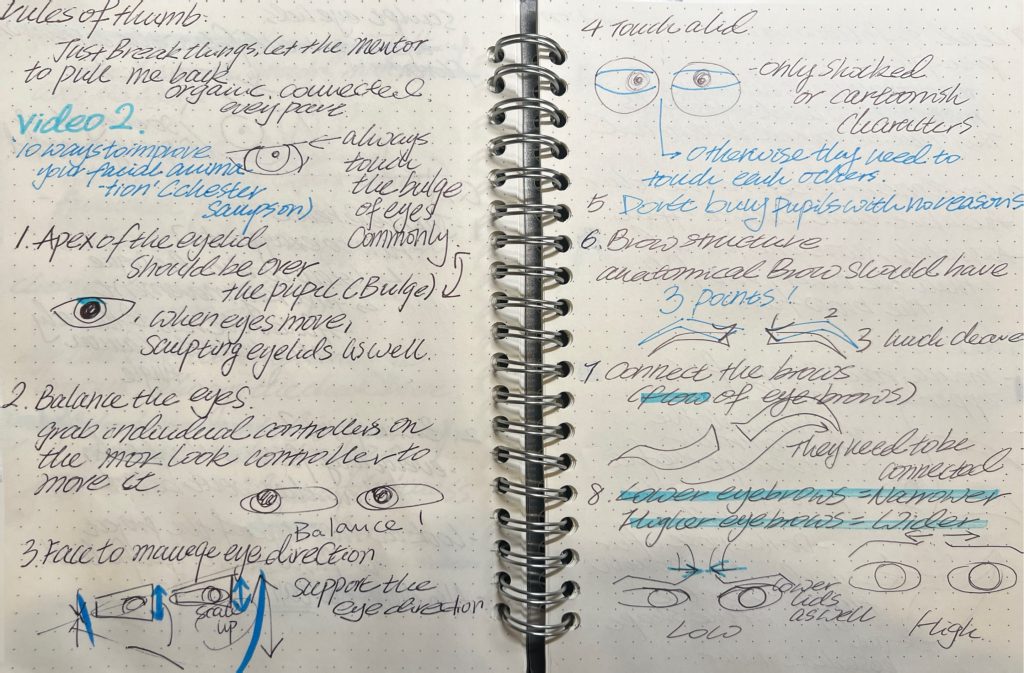 rules of thumb.
Just Break things, let the mentor
to pull me back
organic. connected.
every part
video 2.
10 ways to improve
your facial anima
-tion' (Chester
Sampson)
always
touch
the bulge
of eyes
Commonly
1. Apex of the eyelid
should be over
the pupil (Bulge)
when eyes move,
sculpting eyelids as well.
2. Balance the eyes.
grab individual controllers on
the look controller to
move it
Balance!
3. Face to manege eye direction
scale
up
support the
eye direction
4 Touch a lid
-only shocked
or cartoonish
characters
otherwise they need to
touch each others.
5 Don't bury pupils with no reasons
6. Brow structure
anatomical Brow should have.
3 points!
2
3
7. Connect the brows
(flow of eyebrows)
They need to be
connected
8. Lower eyebrows = Narrower
Higher eyebrows = Wider
lower
lids
as well
Low
High.